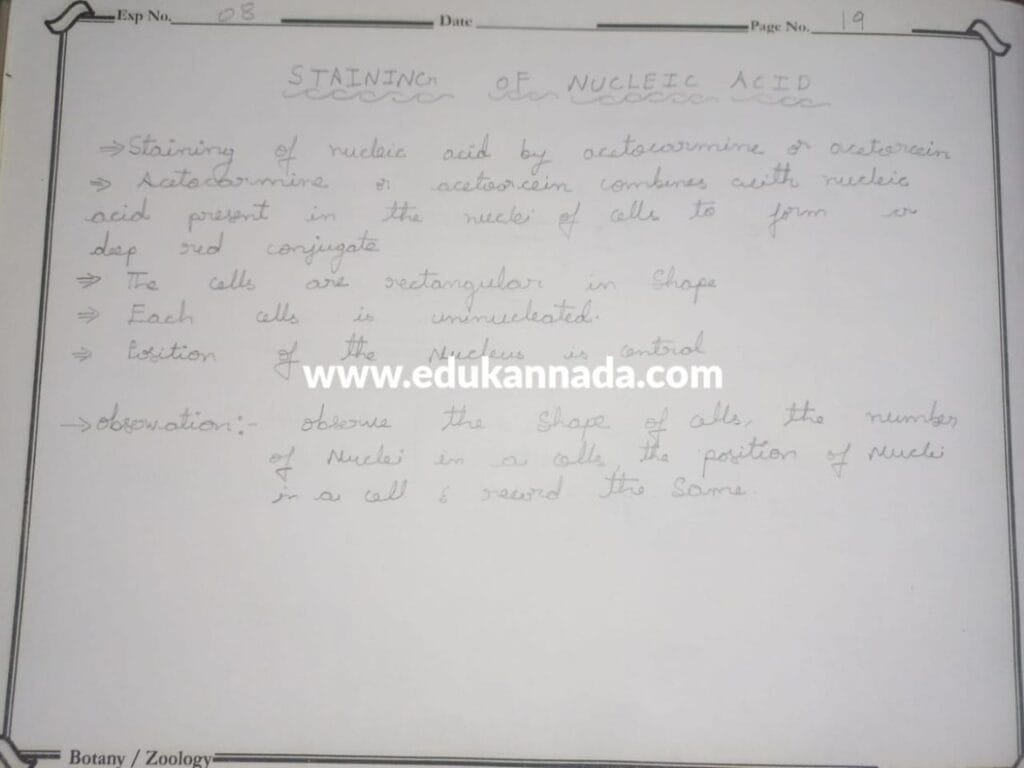 Exp No. 08 Date Page No. 19
STAINING OF NUCLEIC ACID
⇒ Staining of nucleic acid by acetocarmine or acetorcein
⇒ Acetocarmine or acetoorcein combines with nucleic
acid present in the nuclei of cells to form a
deep red conjugate
⇒ The cells are rectangular in Shape
⇒ Each cells is uninucleated.
⇒ Position of the Nucleus is central
www.edukannada.com
→ observation:- observe the Shape of cells, the number
of Nuclei in a cells, the position of Nuclei
in a cell & record the Same.
Botany / Zoology